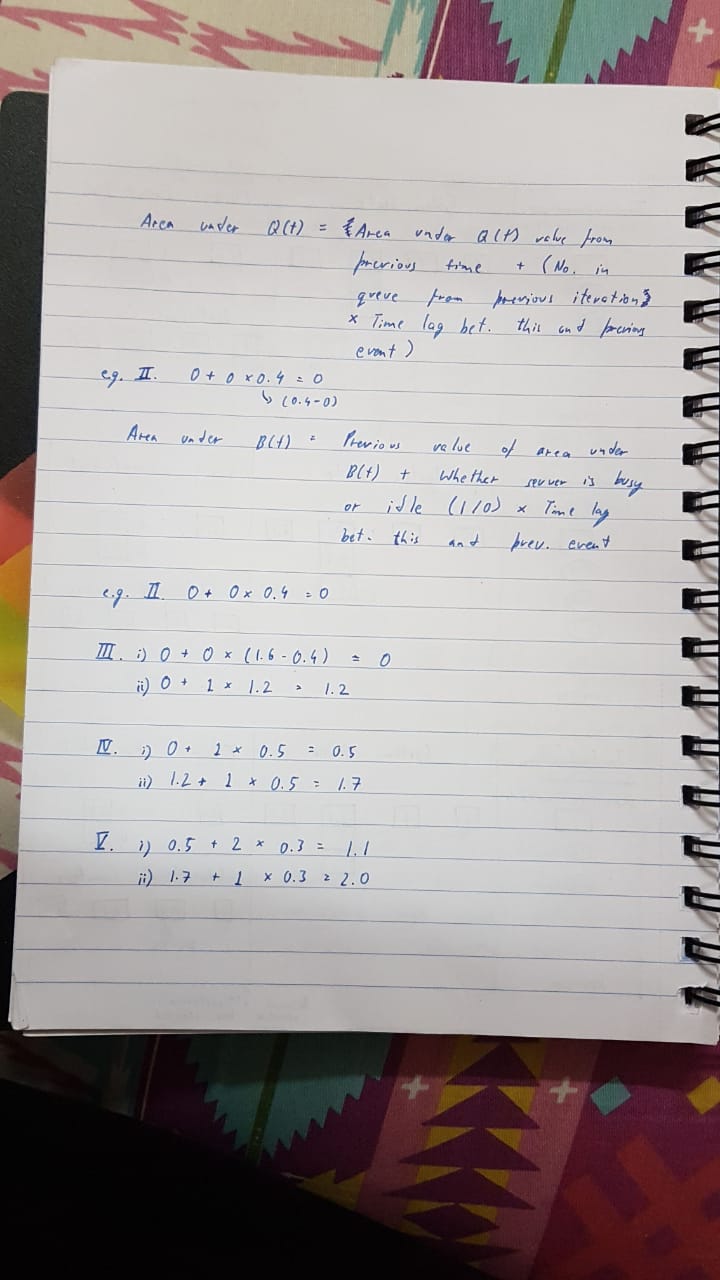 Area under Q(t) = {Area under Q(t) value from
previous time + (No. in
queue from previous iteration}
x Time lag bet. this and previous
event)
eg. II. 0 + 0 x 0.4 = 0
↳ (0.4-0)
Area under B(t) = Previous value of area under
B(t) + Whether server is busy
or idle (1/0) x Time lag
bet. this and prev. event
e.g. II 0 + 0 x 0.4 = 0
III. i) 0 + 0 x (1.6 - 0.4) = 0
ii) 0 + 1 x 1.2 = 1.2
IV. i) 0 + 1 x 0.5 = 0.5
ii) 1.2 + 1 x 0.5 = 1.7
V. i) 0.5 + 2 x 0.3 = 1.1
ii) 1.7 + 1 x 0.3 = 2.0